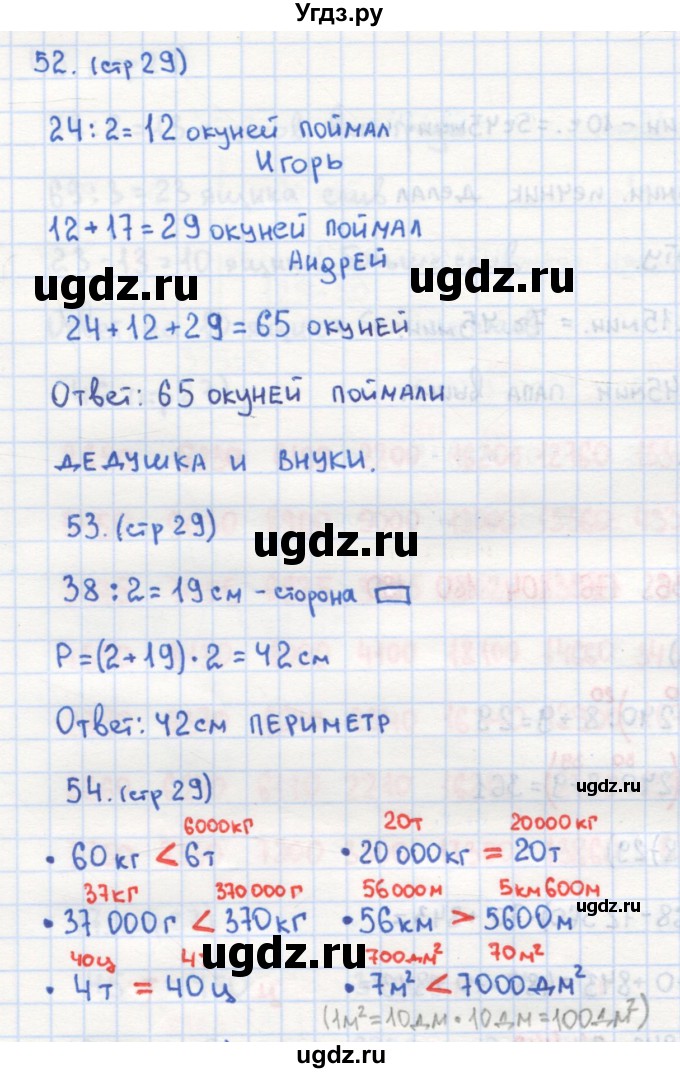 Угдз.ру
52. (стр 29)
24 : 2 = 12 окуней поймал
Игорь
12 + 17 = 29 окуней поймал
Андрей
ugdz.ru ugdz.ru
24 + 12 + 29 = 65 окуней
Ответ: 65 окуней поймали
дедушка и внуки.
53. (стр 29)
ugdz.ru
38 : 2 = 19 см - сторона
P = (2 + 19) · 2 = 42 см
Ответ: 42 см периметр
54. (стр 29)
ugdz.ru
6000 кг 20т 20 000 кг
· 60 кг < 6т · 20 000 кг = 20т
37 кг 370 000 г 56 000 м 5 км 600 м
· 37 000 г < 370 кг · 56 км > 5600 м
40 ц 700 дм² 70 м²
ugdz.ru
· 4 т = 40 ц · 7 м² < 7000 дм²
(1 м² = 10 дм · 10 дм = 100 дм²)
ugdz.ru